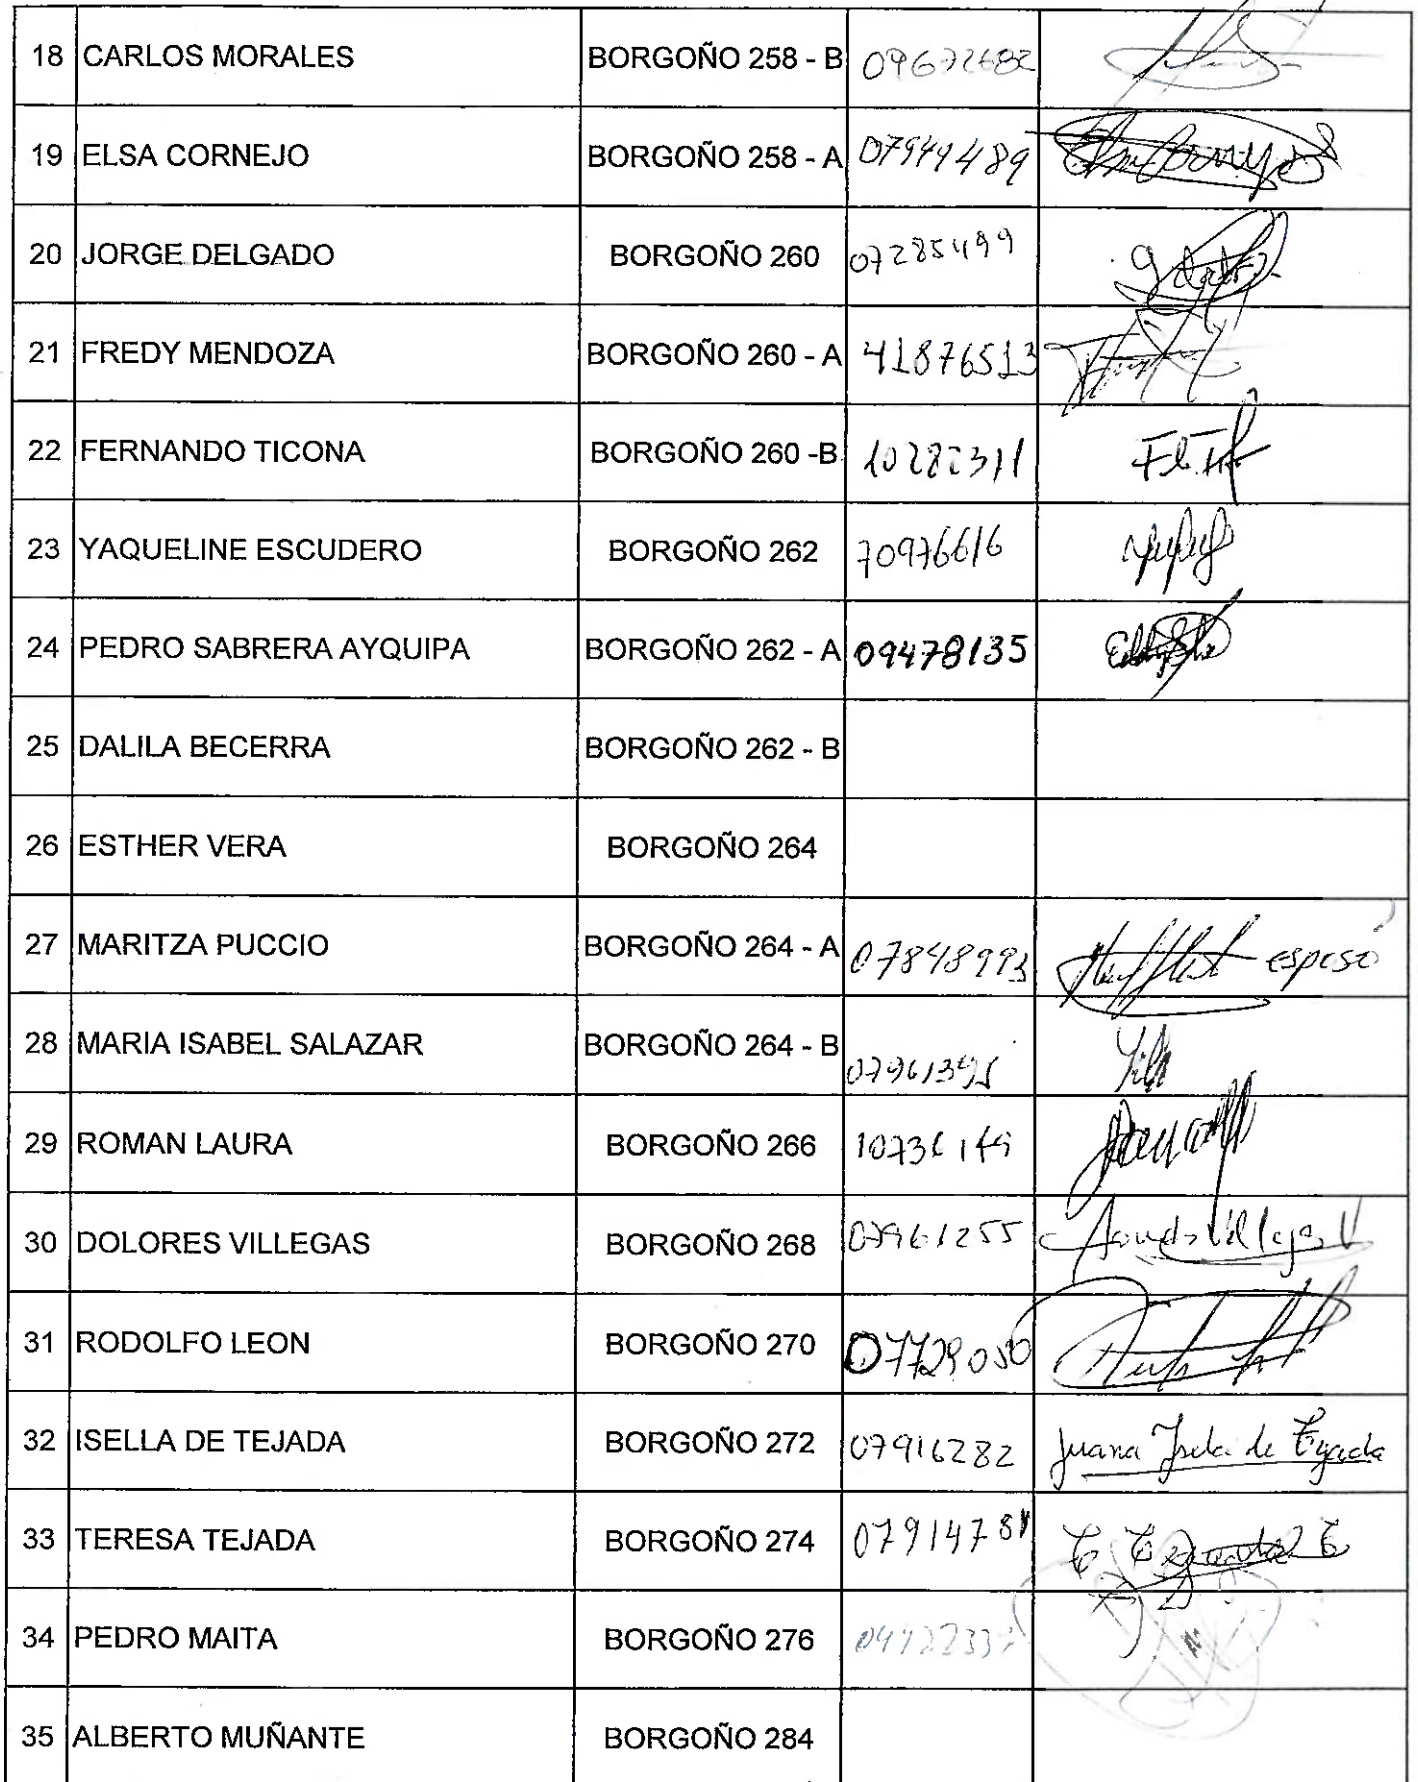 18 CARLOS MORALES BORGOÑO 258 - B 09672682
19 ELSA CORNEJO BORGOÑO 258 - A 07949489
20 JORGE DELGADO BORGOÑO 260 07285499
21 FREDY MENDOZA BORGOÑO 260 - A 41876513
22 FERNANDO TICONA BORGOÑO 260 -B 10282311
23 YAQUELINE ESCUDERO BORGOÑO 262 70976616
24 PEDRO SABRERA AYQUIPA BORGOÑO 262 - A 09478135
25 DALILA BECERRA BORGOÑO 262 - B
26 ESTHER VERA BORGOÑO 264
27 MARITZA PUCCIO BORGOÑO 264 - A 07848993 esposo
28 MARIA ISABEL SALAZAR BORGOÑO 264 - B
29 ROMAN LAURA BORGOÑO 266
30 DOLORES VILLEGAS BORGOÑO 268 07961255
31 RODOLFO LEON BORGOÑO 270 07729050
32 ISELLA DE TEJADA BORGOÑO 272 07916282 Juana Isela de Tejada
33 TERESA TEJADA BORGOÑO 274 07914781
34 PEDRO MAITA BORGOÑO 276
35 ALBERTO MUÑANTE BORGOÑO 284